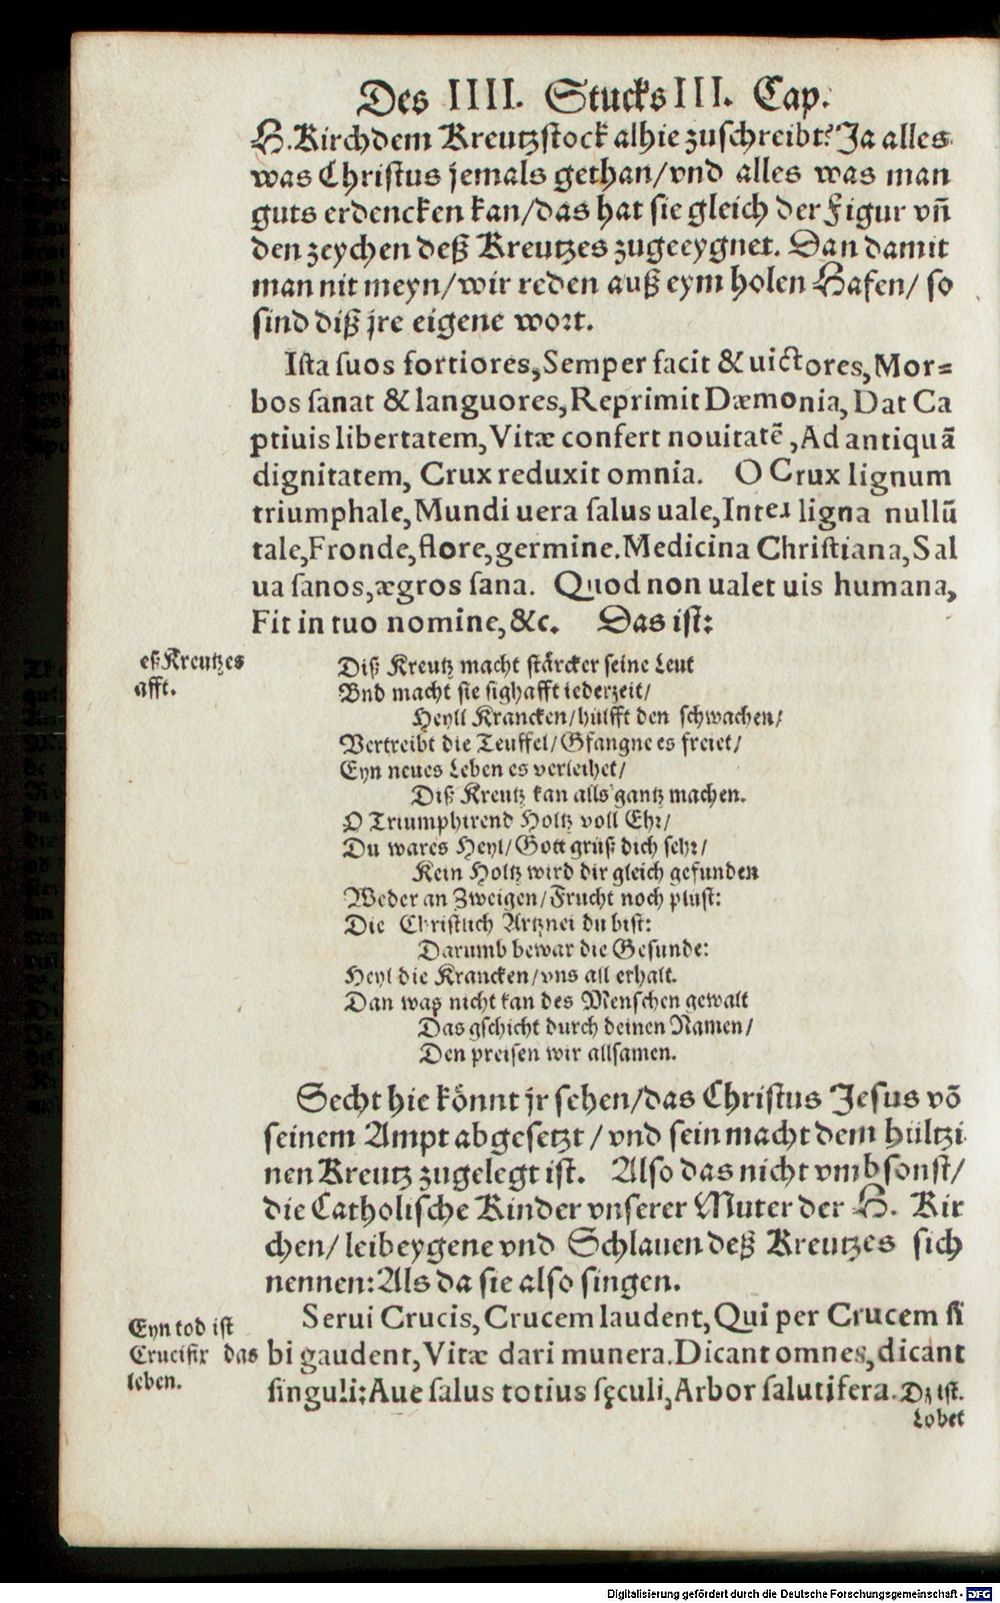 Des IIII. Stucks III. Cap.
H. Kirch dem Kreutzstock alhie zuschreibt? Ja alles
was Christus jemals gethan/ vnd alles was man
guts erdencken kan/ das hat sie gleich der Figur vñ
den zeychen deß Kreutzes zugeeygnet. Dan damit
man nit meyn/ wir reden auß eym holen Hafen/ so
sind diß jre eigene wort.
Ista suos fortiores, Semper facit & uictores, Mor=
bos sanat & languores, Reprimit Dæmonia, Dat Ca
ptiuis libertatem, Vitæ confert nouitatẽ, Ad antiquã
dignitatem, Crux reduxit omnia. O Crux lignum
triumphale, Mundi uera salus uale, Inter ligna nullũ
tale, Fronde, flore, germine. Medicina Christiana, Sal
ua sanos, ægros sana. Quod non ualet uis humana,
Fit in tuo nomine, &c. Das ist:
eß Kreutzes
afft.
Diß Kreutz macht stärcker seine Leut
Vnd macht sie sighafft iederzeit/
Heyll Krancken/ hülfft den schwachen/
Vertreibt die Teuffel/ Gfangne es freiet/
Eyn neues Leben es verleihet/
Diß Kreutz kan alls gantz machen.
O Triumphirend Holtz voll Ehr/
Du wares Heyl/ Gott grüß dich sehr/
Kein Holtz wird dir gleich gefunden
Weder an Zweigen/ Frucht noch plust:
Die Christlich Artznei du bist:
Darumb bewar die Gesunde:
Heyl die Krancken/ vns all erhalt.
Dan was nicht kan des Menschen gewalt
Das gschicht durch deinen Namen/
Den preisen wir allsamen.
Secht hie könnt jr sehen/ das Christus Jesus võ
seinem Ampt abgesetzt/ vnd sein macht dem hültzi
nen Kreutz zugelegt ist. Also das nicht vmb sonst/
die Catholische Kinder vnserer Muter der H. Kir
chen/ leibeygene vnd Schlauen deß Kreutzes sich
nennen: Als da sie also singen.
Serui Crucis, Crucem laudent, Qui per Crucem si
bi gaudent, Vitæ dari munera. Dicant omnes, dicant
singuli: Aue salus totius sęculi, Arbor salutifera. Dz ist.
Eyn tod ist
Crucifix das
leben.
Lobet
Digitalisierung gefördert durch die Deutsche Forschungsgemeinschaft - DFG